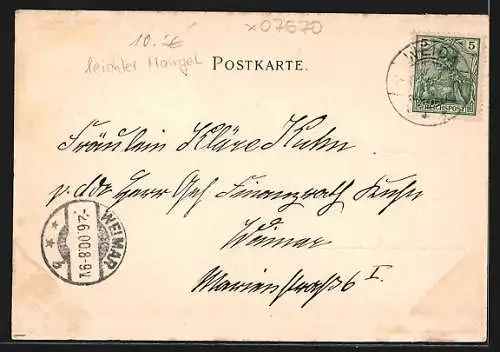 10.-€
x07670
leichter Mangel
POSTKARTE.
5
WEIDA
REICHSPOST
Fräulein Kläre Kuhn
p. Adr Herrn Geh Finanzrath Kuhn
Weimar
Marienstraß 6 I.
WEIMAR
-2.6.00.8-9V.
b